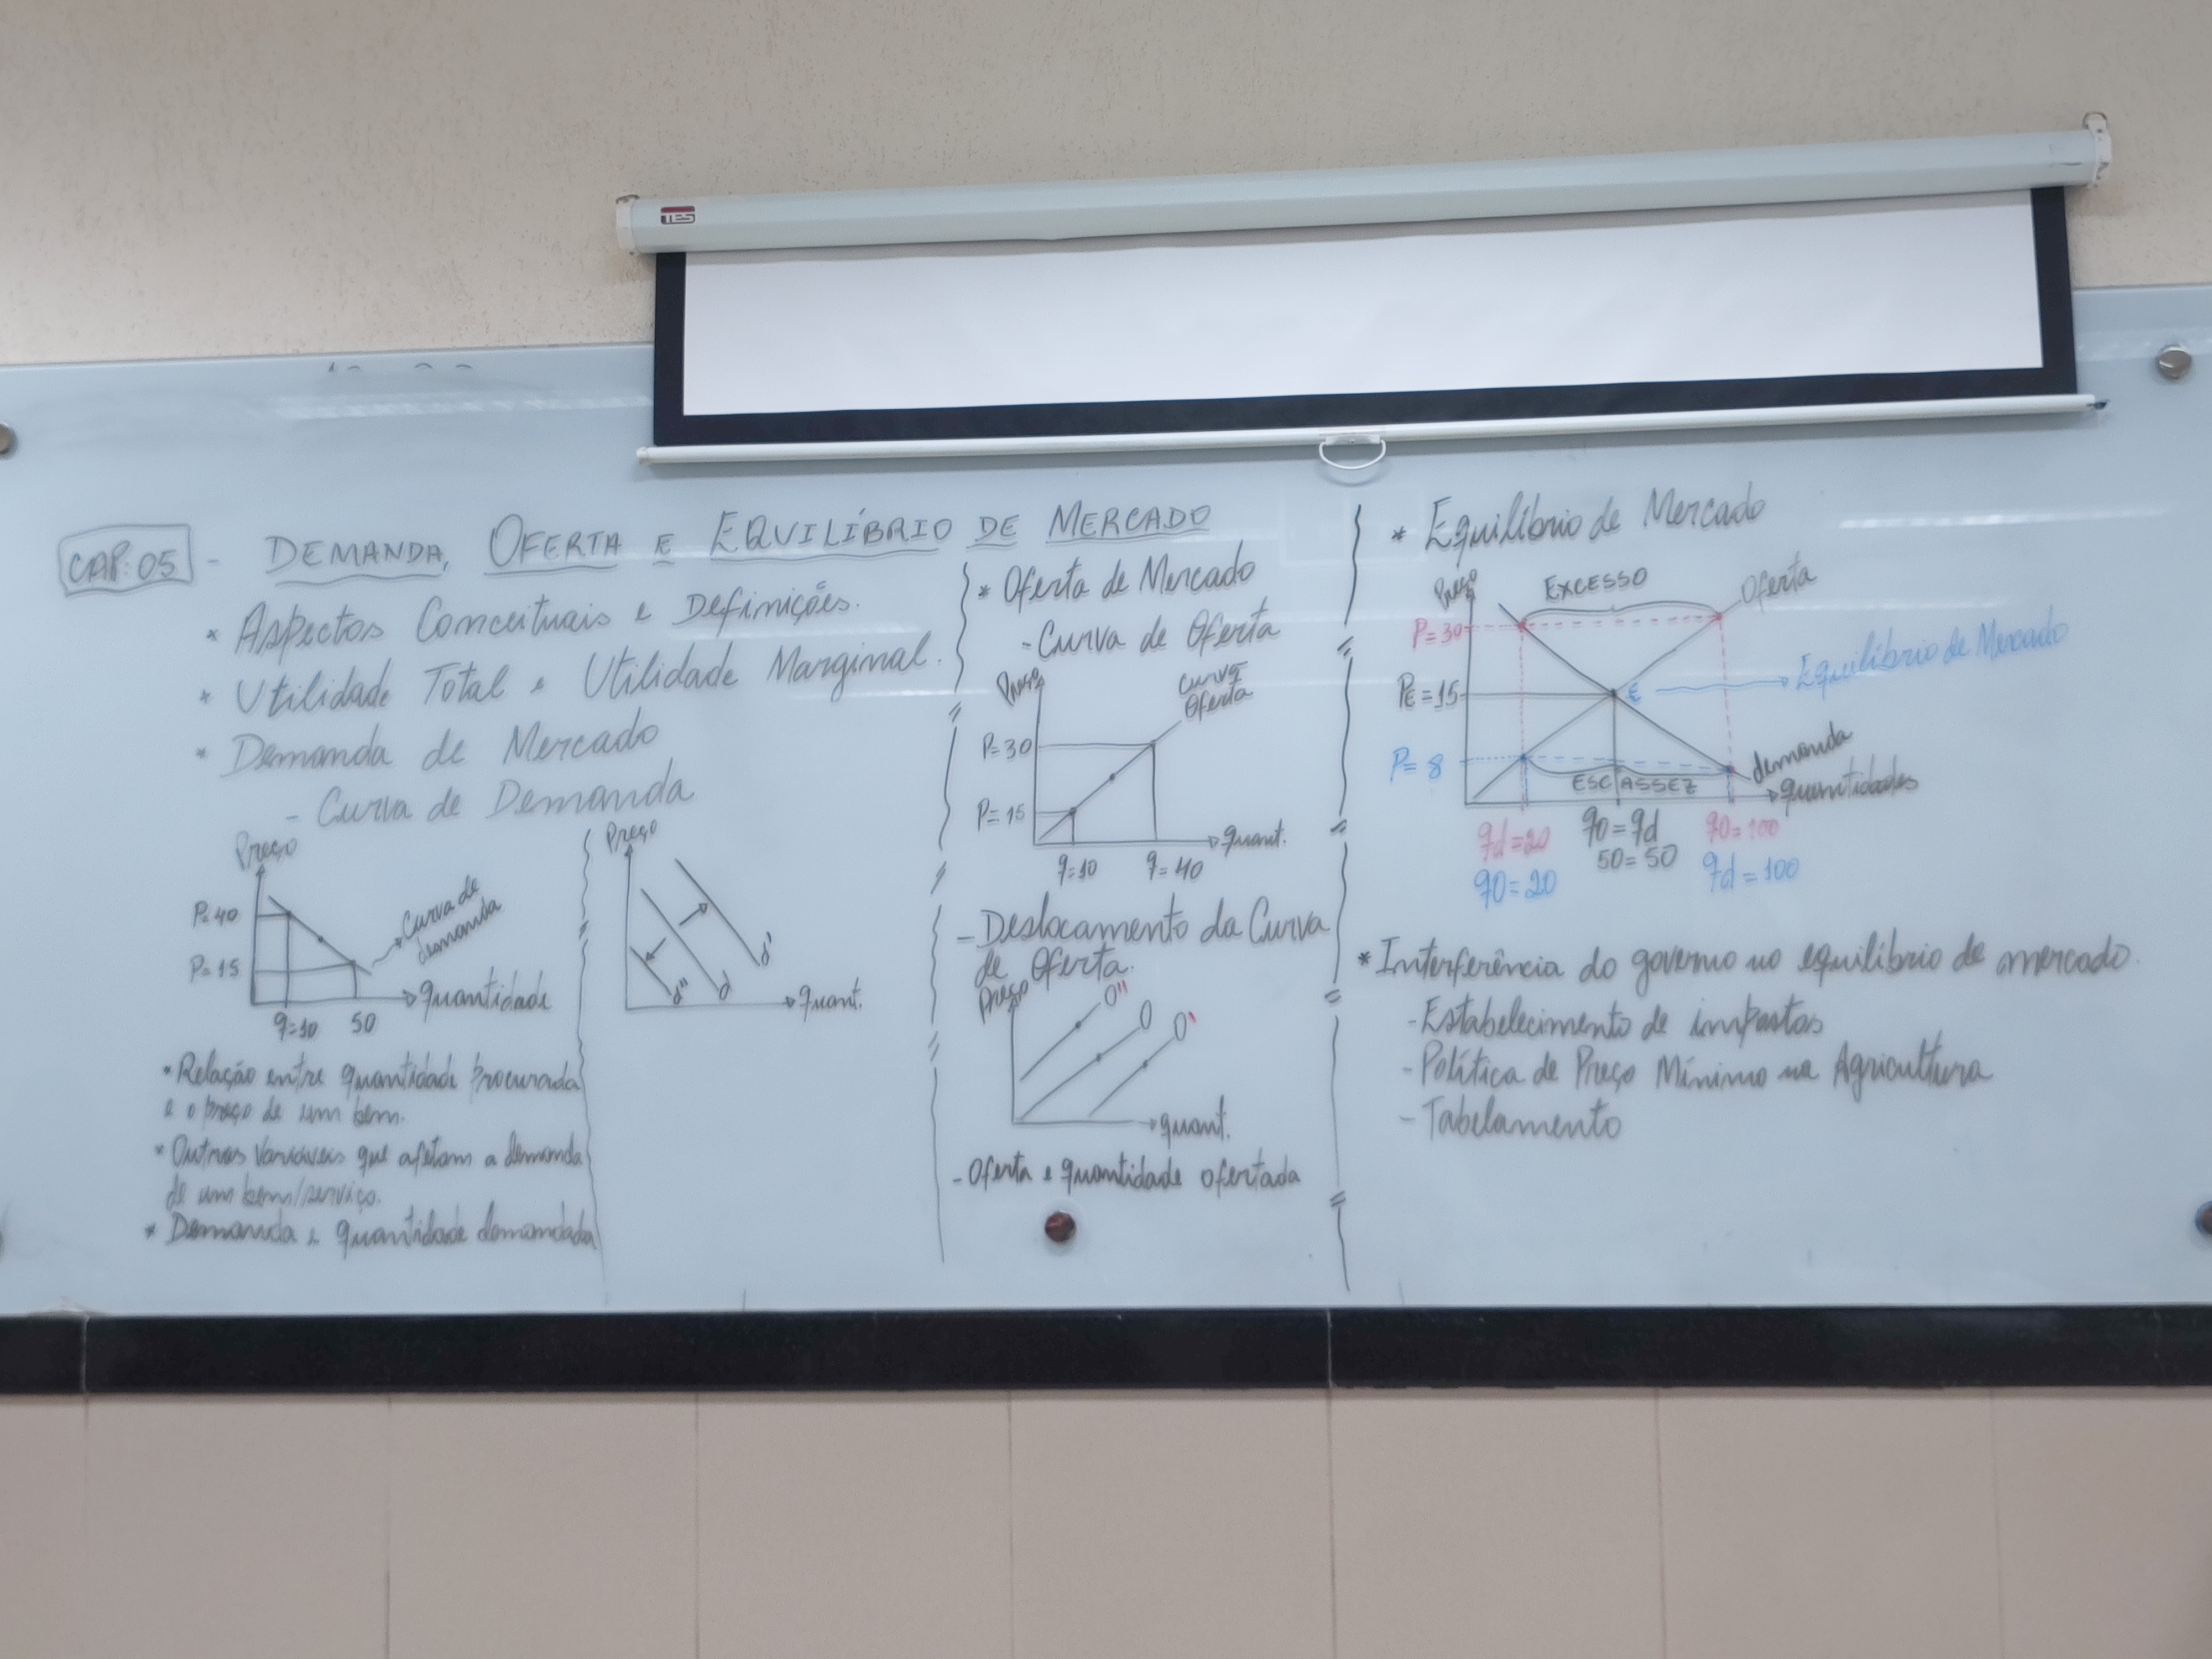 TES
CAP: 05 - DEMANDA, OFERTA E EQUILÍBRIO DE MERCADO
* Aspectos Conceituais e Definições.
* Utilidade Total e Utilidade Marginal.
* Demanda de Mercado
- Curva de Demanda
Preço
P=40
P=15
Curva de
demanda
quantidade
q=10 50
Preço
d'' d d'
quant.
* Relação entre quantidade procurada
e o preço de um bem.
* Outras variáveis que afetam a demanda
de um bem/serviço.
* Demanda e quantidade demandada
* Oferta de Mercado
- Curva de Oferta
Preço
Curva
Oferta
P=30
P=15
quant.
q=10 q=40
- Deslocamento da Curva
de Oferta.
Preço
O'' O O'
quant.
- Oferta e quantidade ofertada
* Equilíbrio de Mercado
Preço
EXCESSO
Oferta
P=30
PE=15
E
Equilíbrio de Mercado
P=8
ESCASSEZ
demanda
quantidades
qd=20 qo=qd qo=100
50=50
qo=20 qd=100
* Interferência do governo no equilíbrio de mercado.
- Estabelecimento de impostos
- Política de Preço Mínimo na Agricultura
- Tabelamento